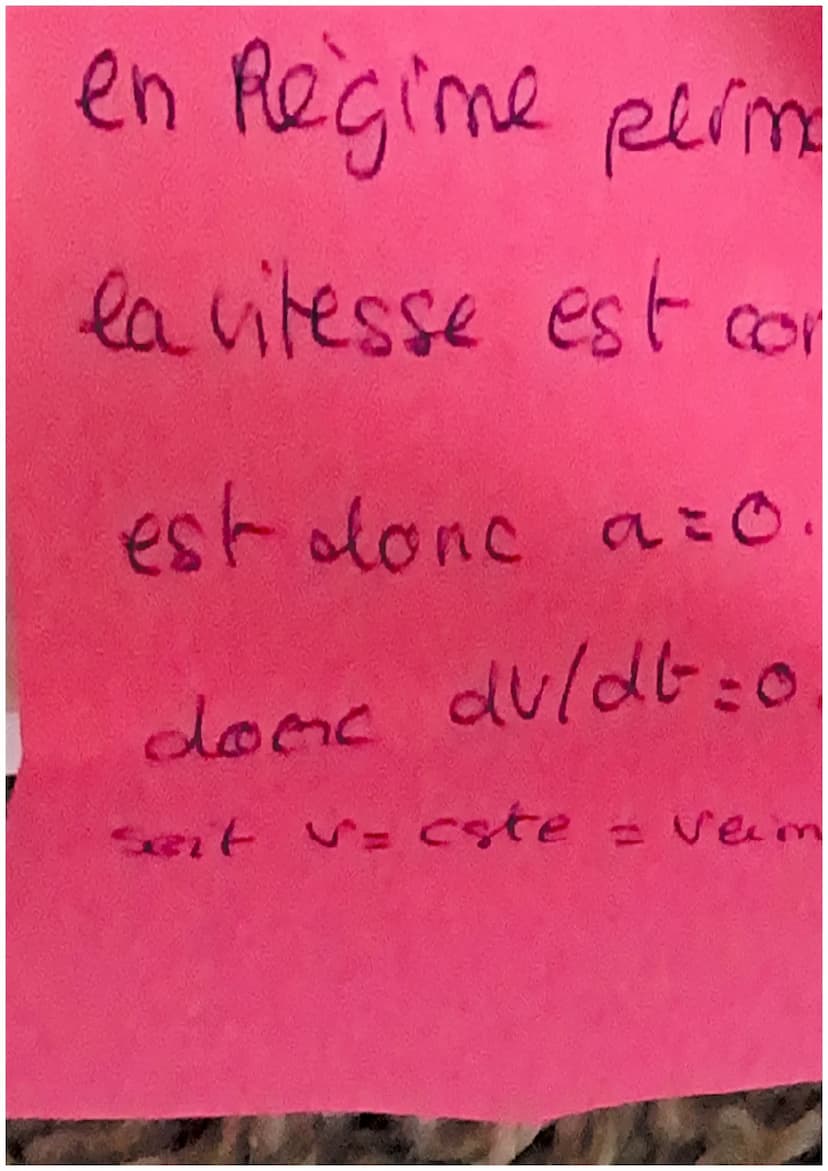 en Règime perm
la vitesse est con
est donc a=0.
donc dv/dt=0.
soit v= cste = vlim